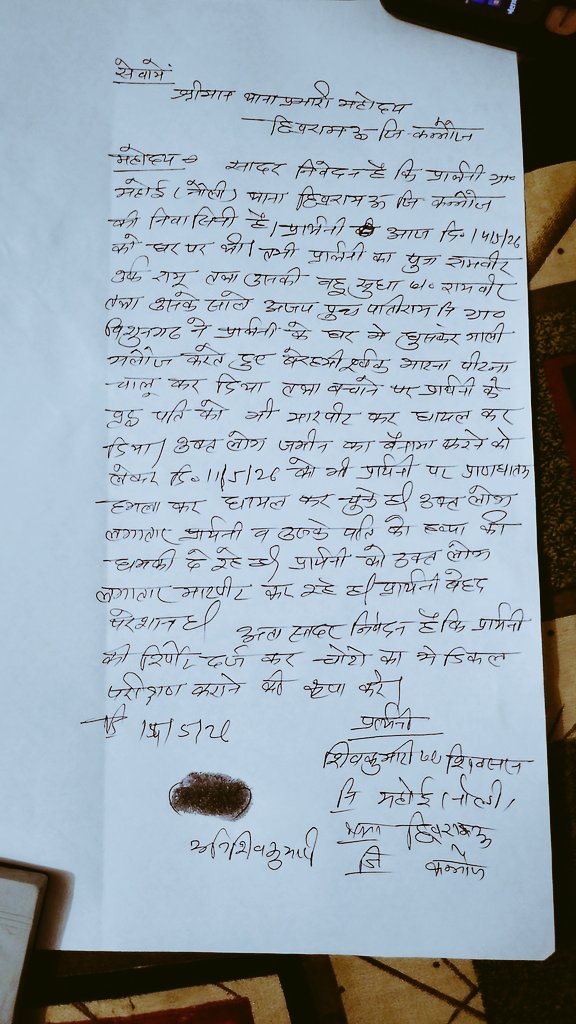 सेवामें
श्रीमान थाना प्रभारी महोदय
छिबरामऊ जि० कन्नौज
महोदय सादर निवेदन है कि प्रार्थिनी ग्रा०
महोई (नौली) थाना छिबरामऊ जि कन्नौज
की निवासिनी है। प्रार्थिनी आज दि० 14/5/26
को घर पर थी। तभी प्रार्थिनी का पुत्र रामवीर
उर्फ रामू तथा उसकी बहू सुधा w/o रामवीर
तथा उसके साले अजय पुत्र पातीराम नि ग्रा०
ने प्रार्थिनी के घर मे घुसकर गाली
गलौज करते हुए बेरहमी पूर्वक मारना पीटना
चालू कर दिया तथा बचाने पर प्रार्थिनी के
वृद्ध पति को भी मारपीट कर घायल कर
दिया। उक्त लोग जमीन का बैनामा करने को
लेकर दि० 11/5/26 को भी प्रार्थिनी पर प्राणघातक
हमला कर घायल कर चुके है। उक्त लोग
लगातार प्रार्थिनी व उनके पति को हत्या की
धमकी दे रहे है। प्रार्थिनी को उक्त लोग
लगातार मारपीट कर रहे है। प्रार्थिनी बेहद
परेशान है।
अतः सादर निवेदन है कि प्रार्थिनी
की रिपोर्ट दर्ज कर चोटो का मेडिकल
परीक्षण कराने की कृपा करे।
दि /5/26 प्रार्थिनी
शिवकुमारी w/o शिवलाल
नि महोई (नौली)
थाना छिबरामऊ
जि कन्नौज
शिवकुमारी